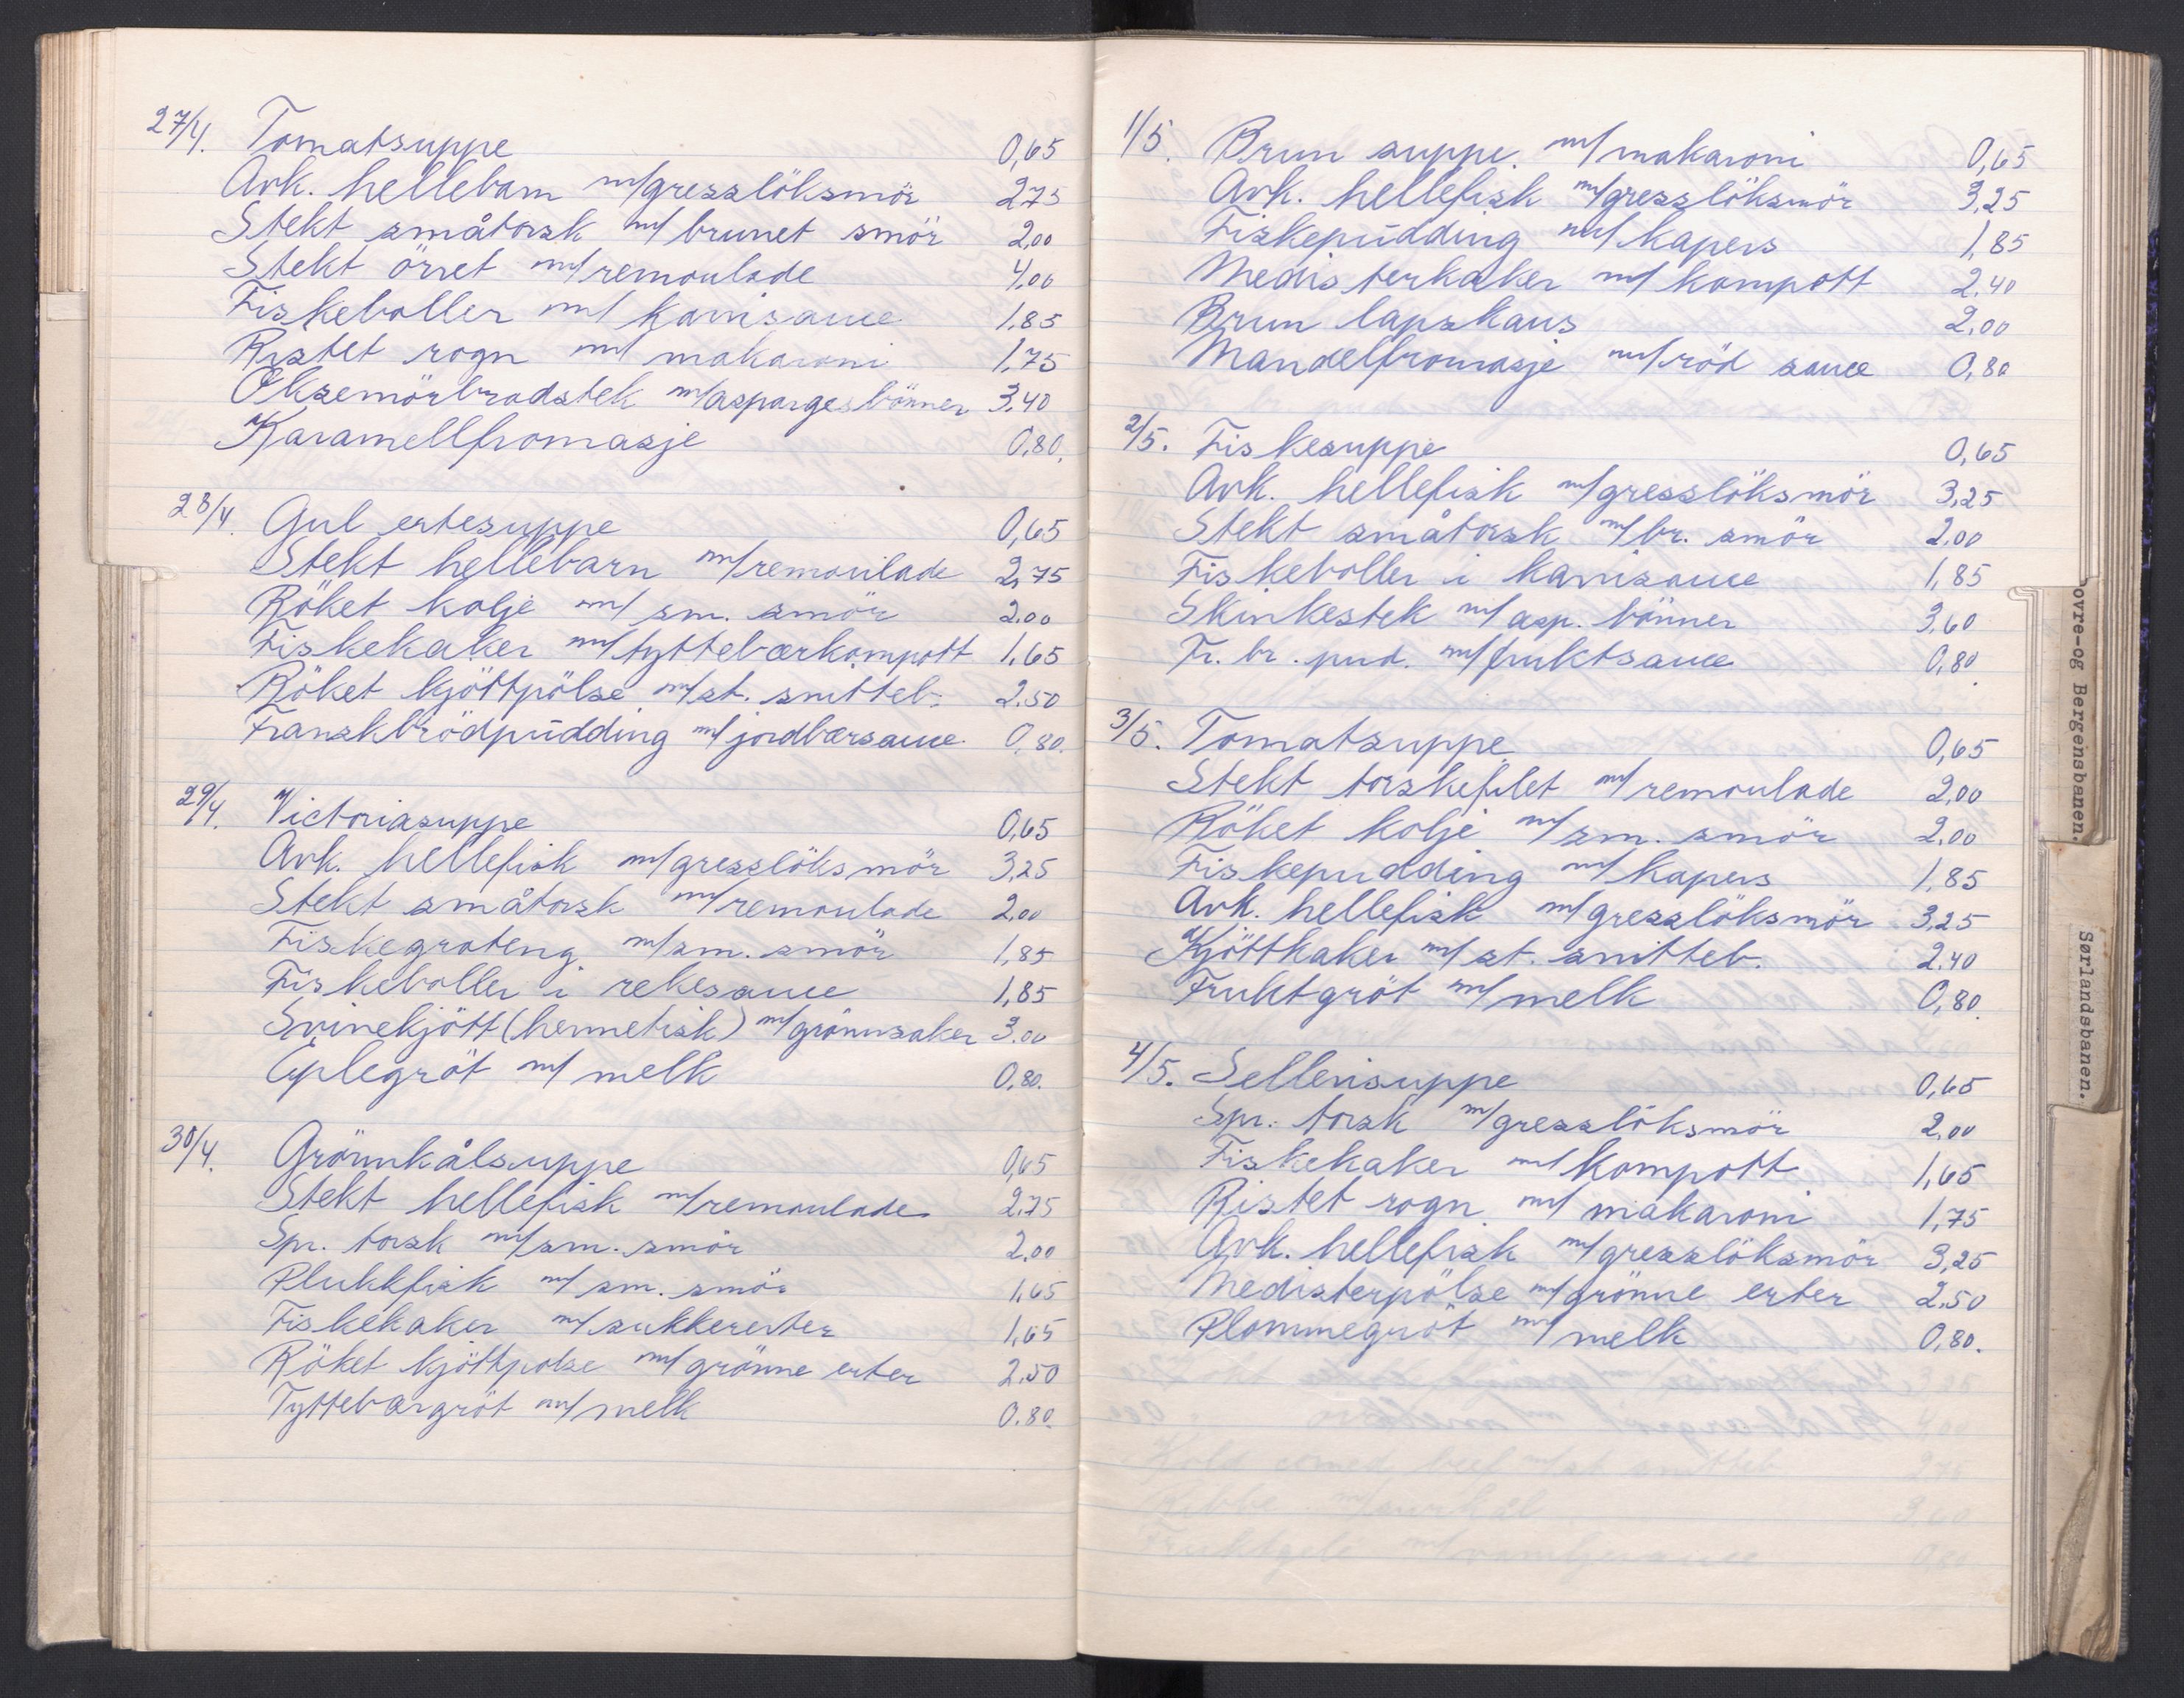 27/4. Tomatsuppe 0,65
Avk. hellebarn m/gresslöksmör 2,75
Stekt småtorsk m/ brunet smör 2,00
Stekt örret m/remoulade 4,00
Fiskeboller m/ karrisauce 1,85
Ristet rogn m/ makaroni 1,75
Oksemörbradstek m/aspargesbönner 3,40
Karamellfromasje 0,80.
28/4. Gul ertesuppe 0,65
Stekt hellebarn m/remoulade 2,75
Röket kolje m/ sm. smör 2.00
Fiskekaker m/tyttebærkompott 1,65
Röket kjöttpölse m/st. snitteb. 2.50
Franskbrödpudding m/jordbærsauce 0,80.
29/4. Victoriasuppe 0,65
Avk. hellefisk m/gresslöksmör 3,25
Stekt småtorsk m/remoulade 2,00
Fiskegrateng m/sm. smör 1,85
Fiskeboller i rekesauce 1,85
Svinekjött (hermetisk) m/grönnsaker 3.00
Eplegröt m/ melk 0,80.
30/4. Grönnkålsuppe 0,65
Stekt hellefisk m/remoulade 2,75
Spr. torsk m/sm. smör 2.00
Plukkfisk m/ sm. smör 1,65
Fiskekaker m/sukkererter 1,65
Röket kjöttpölse m/grönne erter 2.50
Tyttebærgröt m/melk 0.80.
1/5. Brun suppe m/makaroni 0,65
Avk. hellefisk m/gresslöksmör 3,25
Fiskepudding m/ kapers 1,85
Medisterkaker m/ kompott 2.40
Brun lapskaus 2,00
Mandelfromasje m/röd sauce 0,80
2/5. Fiskesuppe 0,65
Avk. hellefisk m/gresslöksmör 3,25
Stekt småtorsk m/br. smör 2,00
Fiskeboller i karrisauce 1,85
Skinkestek m/asp. bönner 3,60
Fr. br. pud. m/fruktsauce 0,80.
3/5. Tomatsuppe 0,65
Stekt torskefilet m/remoulade 2,00
Röket kolje m/sm. smör 2,00
Fiskepudding m/kapers 1,85
Avk. hellefisk m/gresslöksmör 3,25
Kjöttkaker m/st. snitteb. 2.40
Fruktgröt m/melk 0,80.
4/5. Sellerisuppe 0,65
Spr. torsk m/gresslöksmör 2,00
Fiskekaker m/kompott 1,65
Ristet rogn m/ makaroni 1,75
Avk. hellefisk m/gresslöksmör 3,25
Medisterpölse m/grönne erter 2.50
Plommegröt m/melk 0,80.
ovre-og Bergensbanen.
Sørlandsbanen.